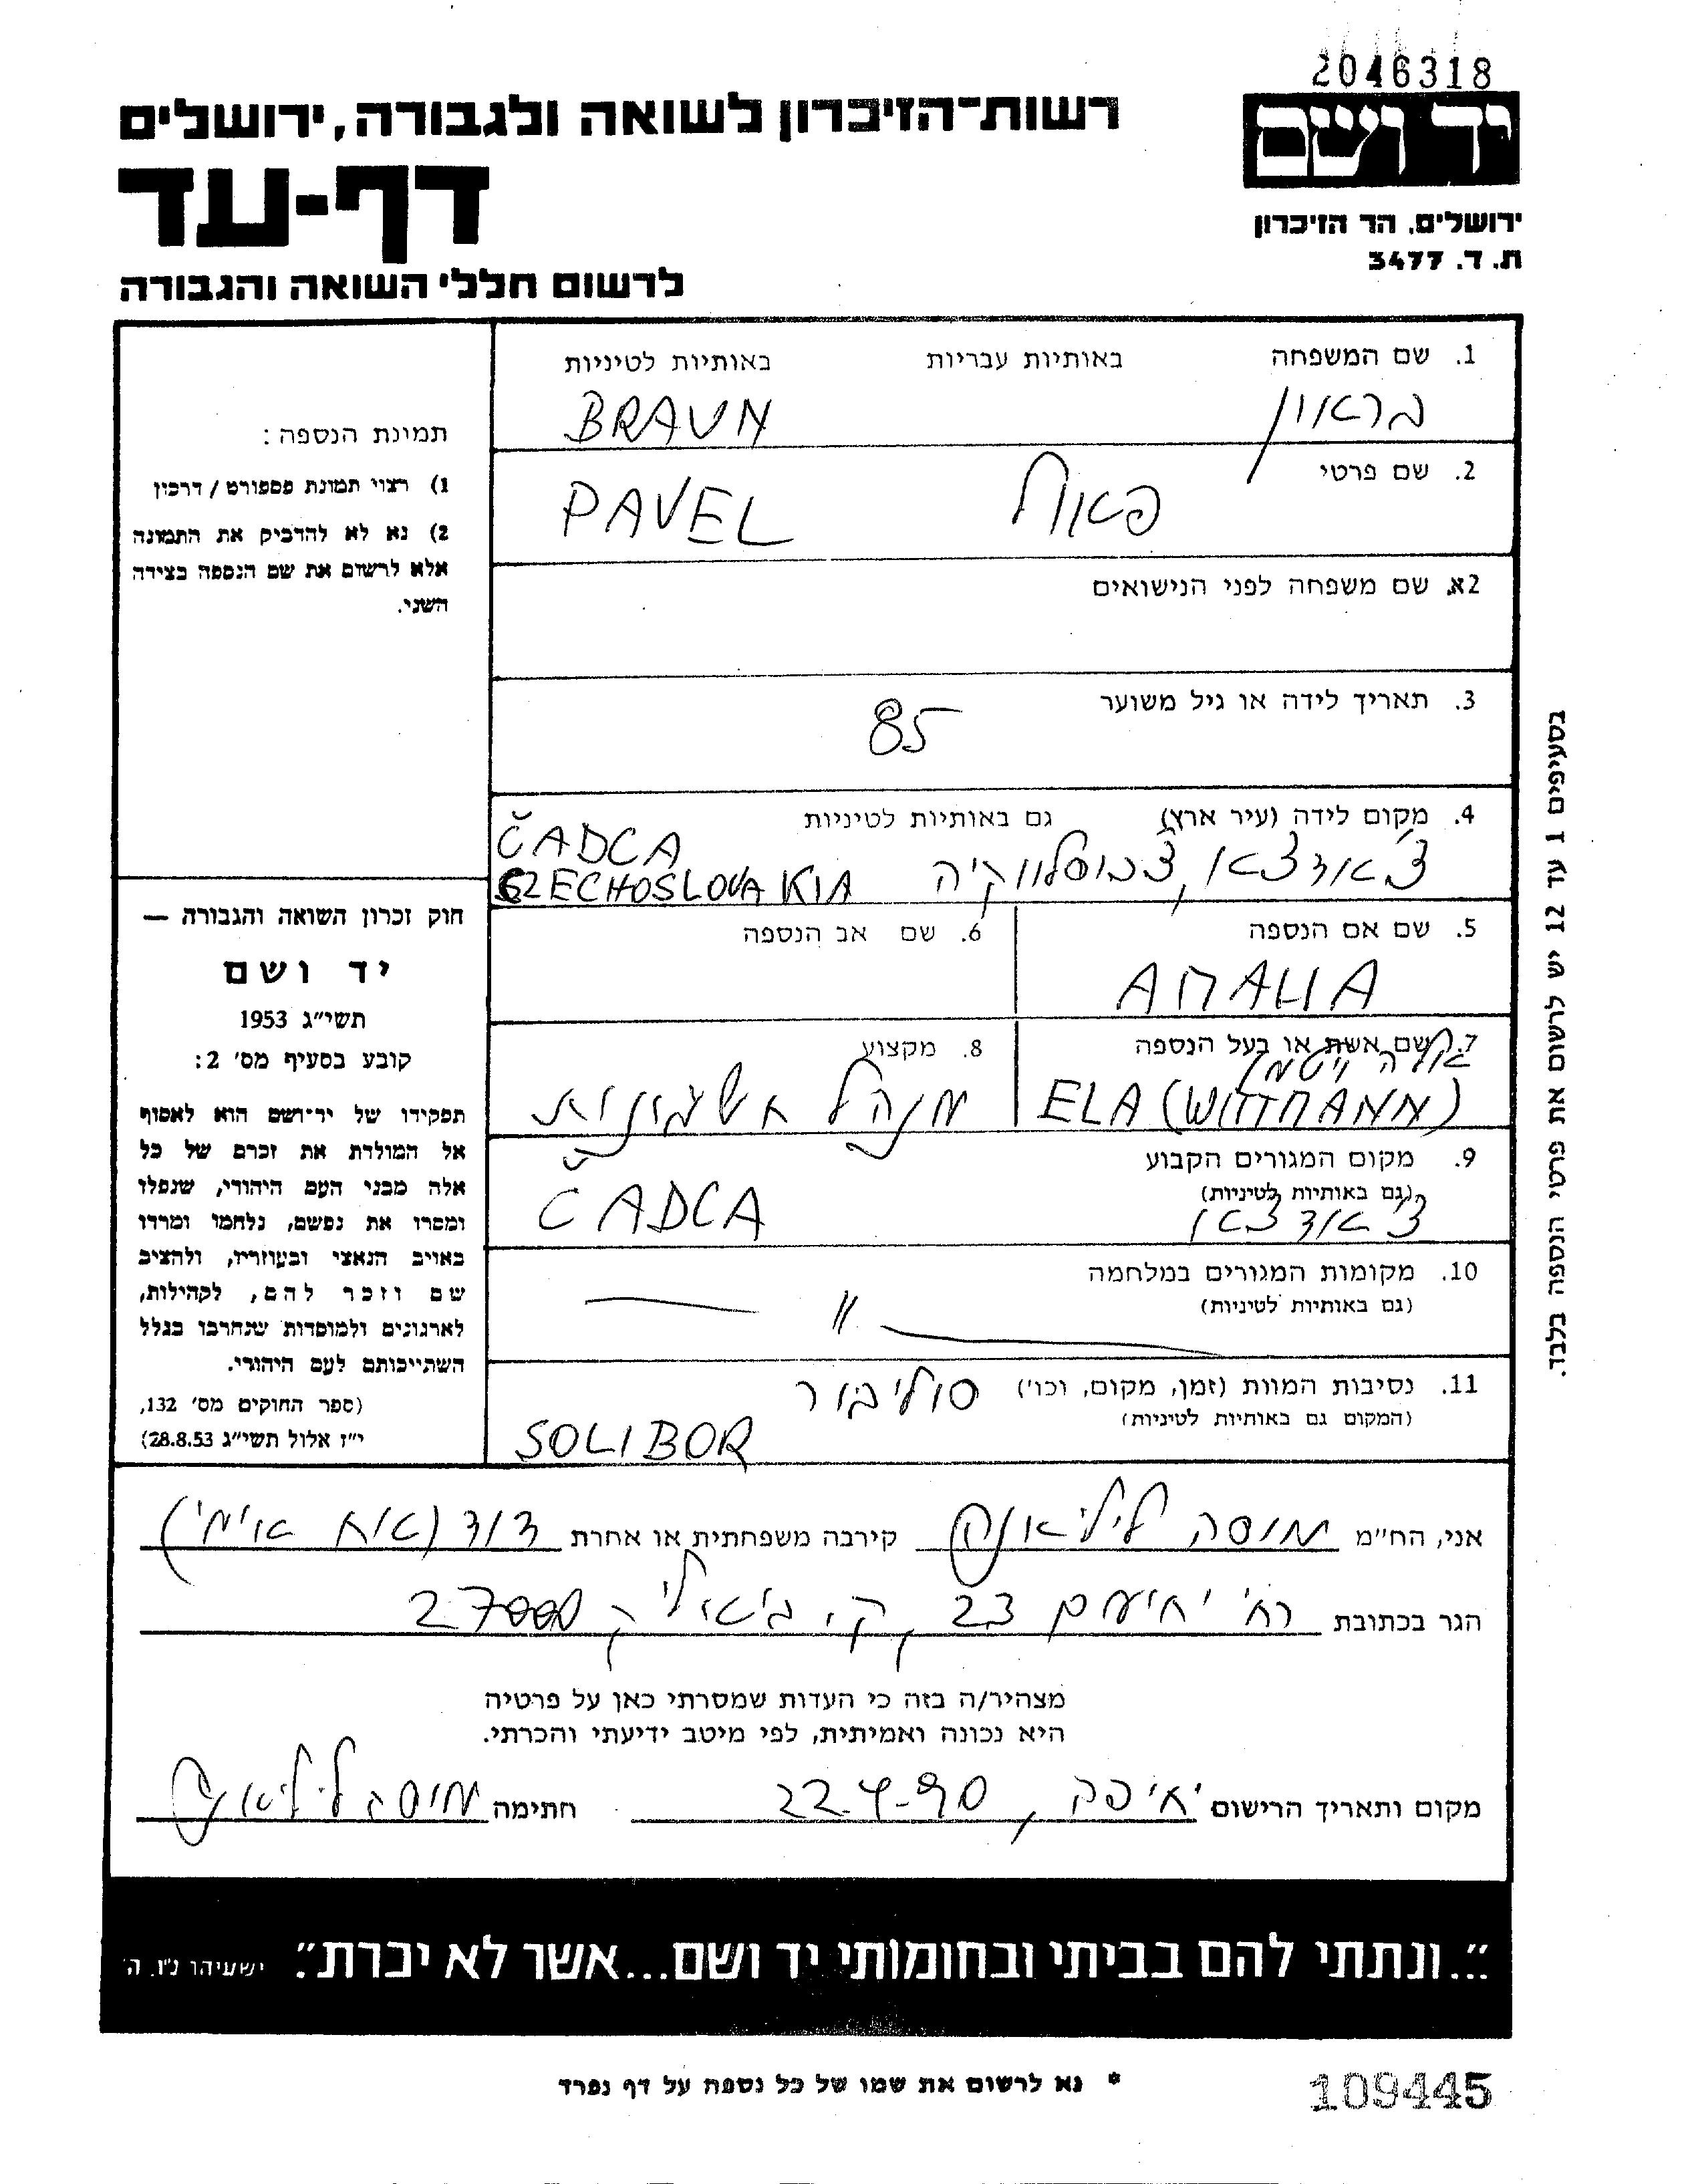 2046318
יד ושם
ירושלים, הר הזיכרון
ת. ד. 3477
רשות־הזיכרון לשואה ולגבורה, ירושלים
דף-עד
לרשום חללי השואה והגבורה
1. שם המשפחה באותיות עבריות באותיות לטיניות
בראון BRAUN
2. שם פרטי
פאול PAVEL
2א. שם משפחה לפני הנישואים
3. תאריך לידה או גיל משוער
85
4. מקום לידה (עיר ארץ) גם באותיות לטיניות
צ'אדצאו, צ'כוסלווקיה ČADCA
CZECHOSLOVAKIA
5. שם אם הנספה 6. שם אב הנספה
AMALIA
7. שם אשת או בעל הנספה 8. מקצוע
אלה ויטמן
ELA (WITTMANN) מנהל חשבונות
9. מקום המגורים הקבוע
(גם באותיות לטיניות)
צ'אדצאו ČADCA
10. מקומות המגורים במלחמה
(גם באותיות לטיניות)
— // —
11. נסיבות המוות (זמן, מקום, וכו') סוליבור
(המקום גם באותיות לטיניות)
SOLIBOR
תמונת הנספה:
1) רצוי תמונת פספורט / דרכון
2) נא לא להדביק את התמונה
אלא לרשום את שם הנספה בצידה
השני.
חוק זכרון השואה והגבורה —
יד ושם
תשי"ג 1953
קובע בסעיף מס' 2:
תפקידו של יד-ושם הוא לאסוף
אל המולדת את זכרם של כל
אלה מבני העם היהודי, שנפלו
ומסרו את נפשם, נלחמו ומרדו
באויב הנאצי ובעוזריו, ולהציב
שם וזכר להם, לקהילות,
לארגונים ולמוסדות שנחרבו בגלל
השתייכותם לעם היהודי.
(ספר החוקים מס' 132,
י"ז אלול תשי"ג 28.8.53)
בסעיפים 1 עד 12 יש לרשום את פרטי הנספה בלבד.
אני, הח"מ מוסה ליליאנה קירבה משפחתית או אחרת דוד (אח אימי)
הגר בכתובת רח' יחיעם 23, ק. ביאליק 27000
מצהיר/ה בזה כי העדות שמסרתי כאן על פרטיה
היא נכונה ואמיתית, לפי מיטב ידיעתי והכרתי.
מקום ותאריך הרישום חיפה, 22.4.90 חתימה מוסה ליליאנה
"...ונתתי להם בביתי ובחומותי יד ושם...אשר לא יכרת". ישעיהו נ"ו. ה'
* נא לרשום את שמו של כל נספה על דף נפרד
109445